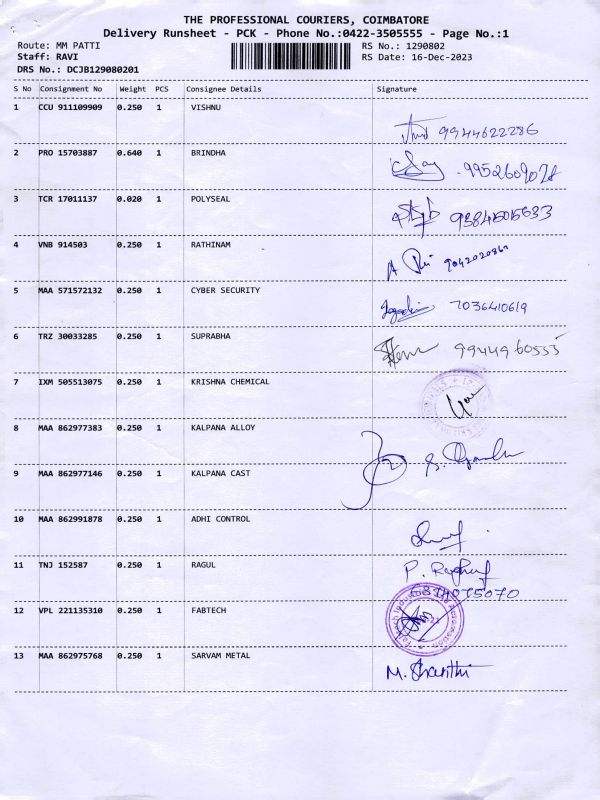 THE PROFESSIONAL COURIERS, COIMBATORE
Delivery Runsheet - PCK - Phone No.:0422-3505555 - Page No.:1
Route: MM PATTI RS No.: 1290802
Staff: RAVI RS Date: 16-Dec-2023
DRS No.: DCJB129080201
S No Consignment No Weight PCS Consignee Details Signature
1 CCU 911109909 0.250 1 VISHNU
9944622286
2 PRO 15703887 0.640 1 BRINDHA
3 TCR 17011137 0.020 1 POLYSEAL
4 VNB 914503 0.250 1 RATHINAM
5 MAA 571572132 0.250 1 CYBER SECURITY
7036410619
6 TRZ 30033285 0.250 1 SUPRABHA
9944960555
7 IXM 505513075 0.250 1 KRISHNA CHEMICAL
8 MAA 862977383 0.250 1 KALPANA ALLOY
9 MAA 862977146 0.250 1 KALPANA CAST
10 MAA 862991878 0.250 1 ADHI CONTROL
11 TNJ 152587 0.250 1 RAGUL
12 VPL 221135310 0.250 1 FABTECH
13 MAA 862975768 0.250 1 SARVAM METAL
M. Sharithi